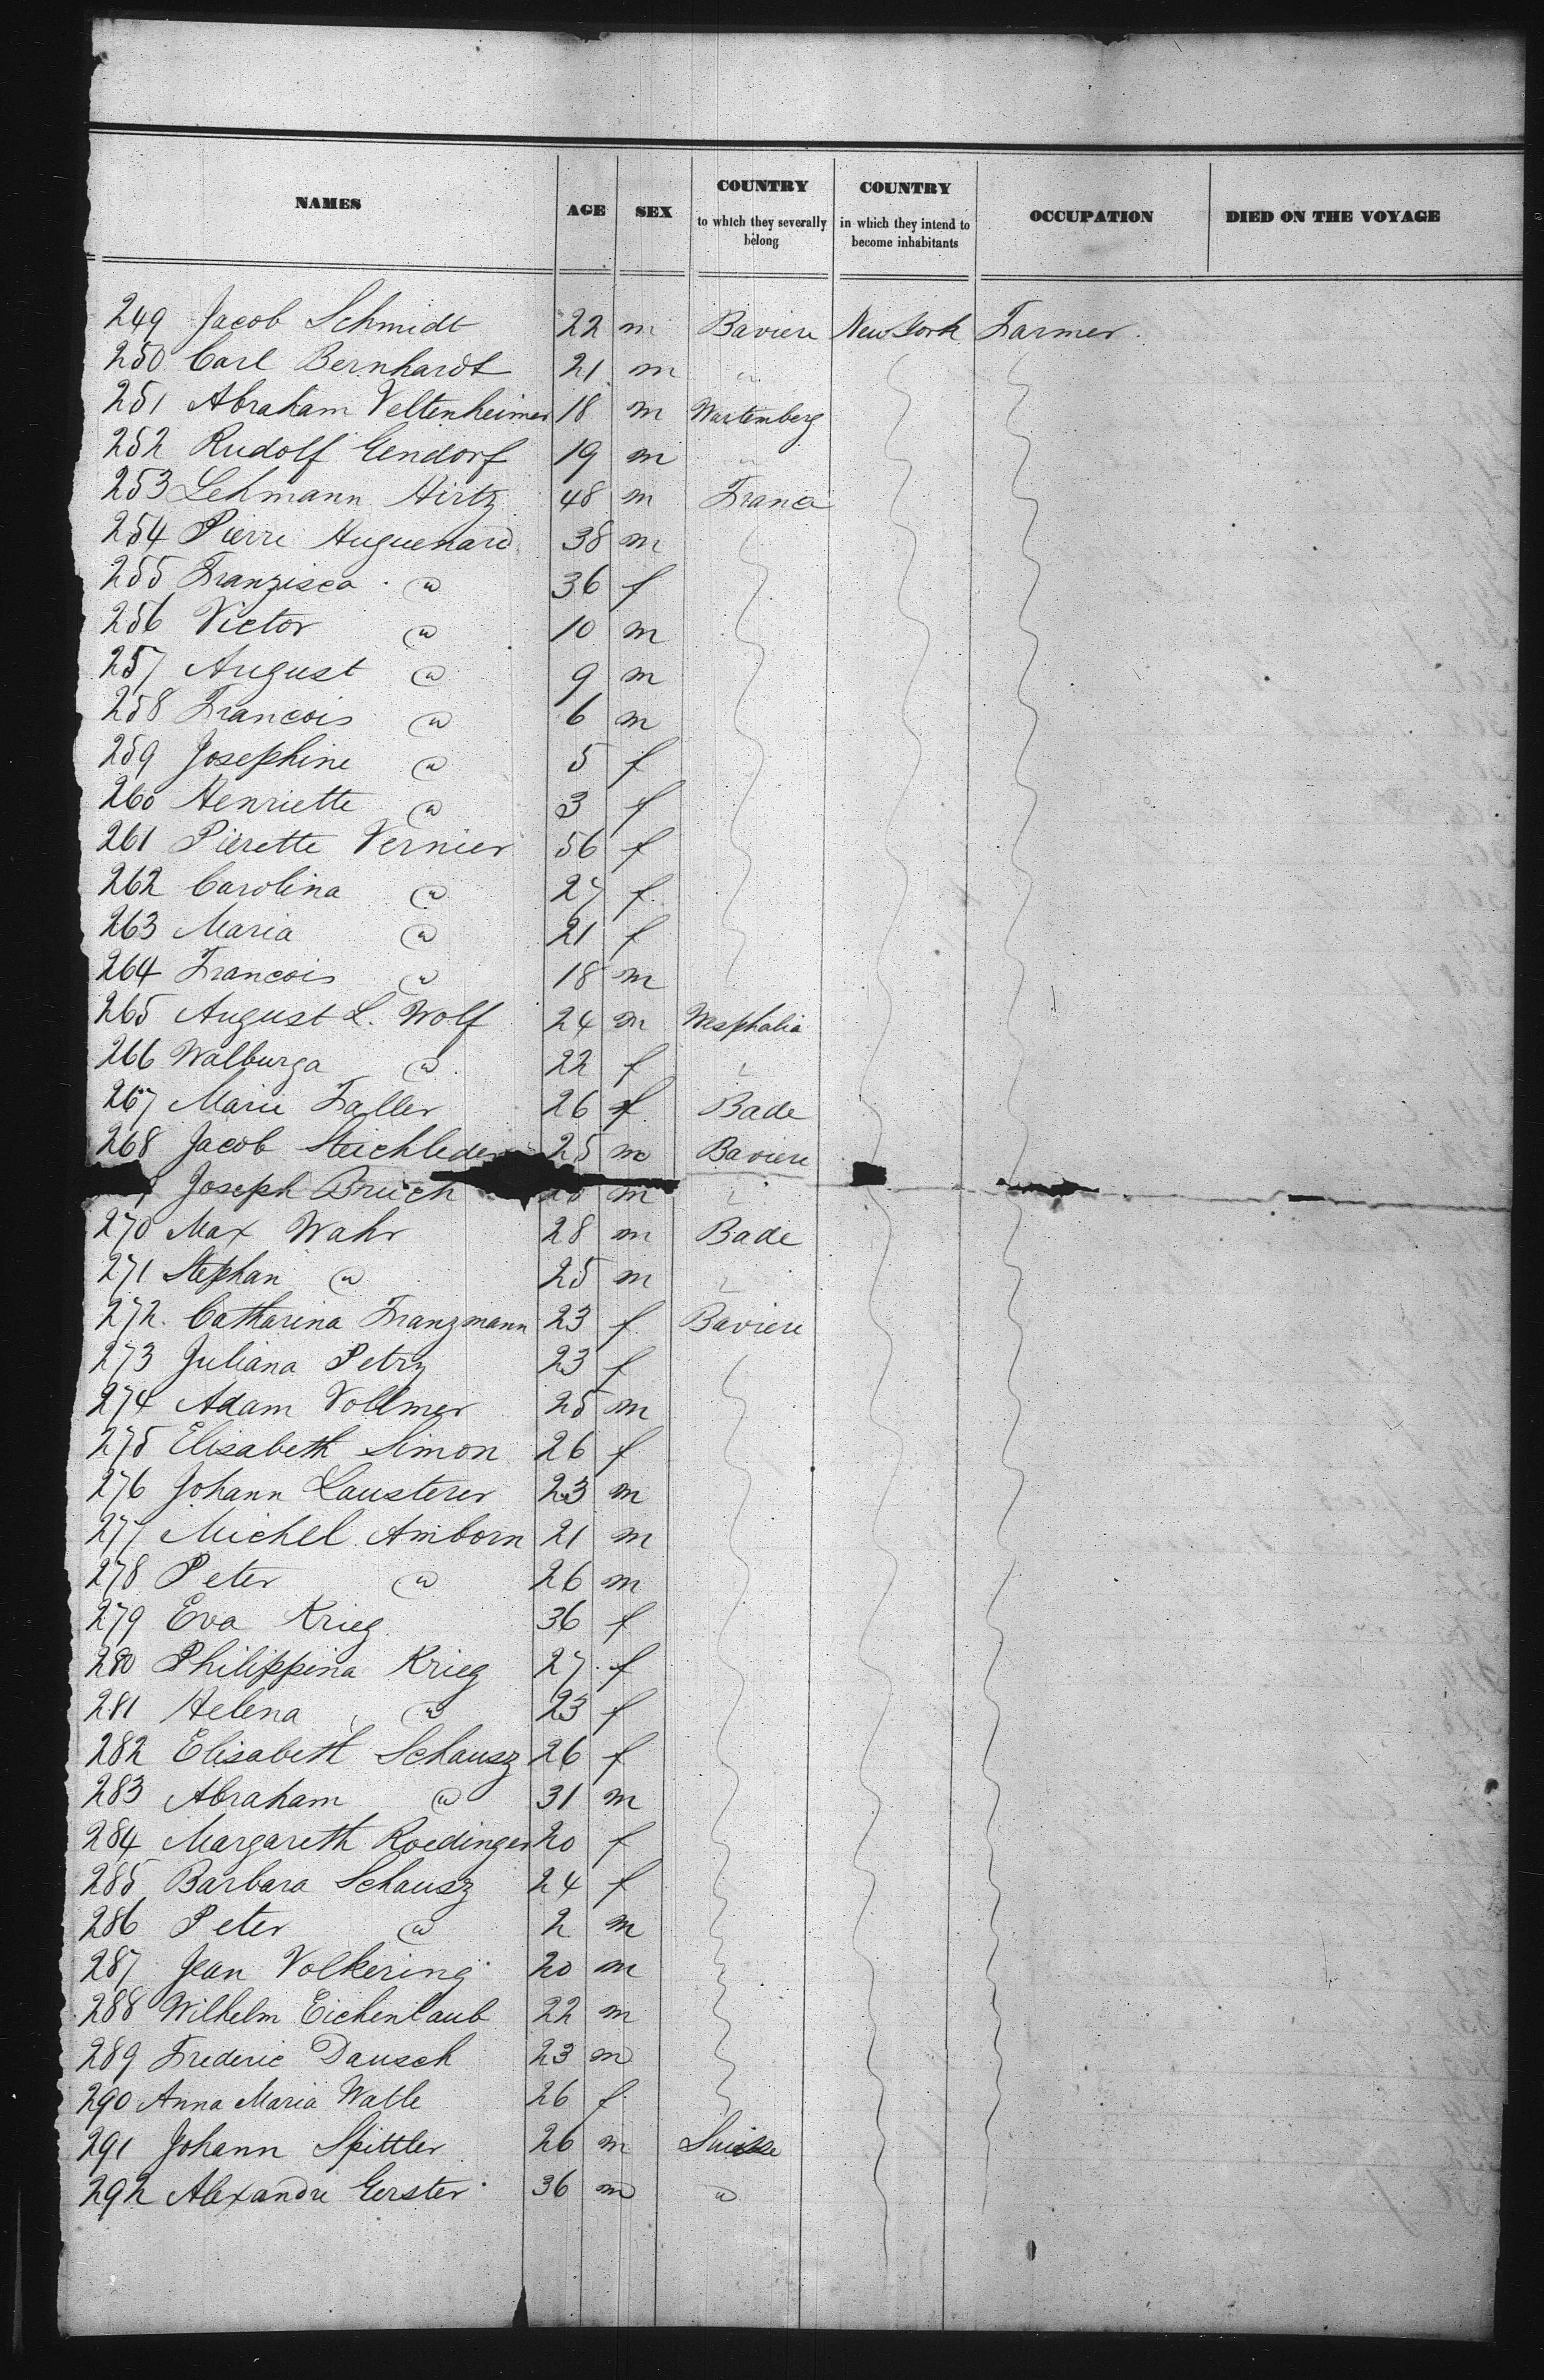 NAMES AGE SEX COUNTRY to which they severally belong COUNTRY in which they intend to become inhabitants OCCUPATION DIED ON THE VOYAGE
249 Jacob Schmidt 22 m Baviere New York Farmer
250 Carl Bernhardt 21 m "
251 Abraham Veltenheimer 18 m Wurtemberg
252 Rudolf Gendorf 19 m "
253 Lehmann Hirtz 48 m France
254 Pierre Huguenard 38 m
255 Franzisca " 36 f
256 Victor " 10 m
257 August " 9 m
258 Francois " 6 m
259 Josephine " 5 f
260 Henriette " 3 f
261 Pierette Vernier 56 f
262 Carolina " 27 f
263 Maria " 21 f
264 Francois " 18 m
265 August L. Wolf 24 m Wesphalia
266 Walburga " 22 f "
267 Marie Faller 26 f Bade
268 Jacob Steichleder 25 m Baviere
Joseph Bruch m "
270 Max Wahr 28 m Bade
271 Stephan " 25 m "
272. Catharina Franzmann 23 f Baviere
273 Juliana Petry 23 f
274 Adam Vollmer 25 m
275 Elisabeth Simon 26 f
276 Johann Lausterer 23 m
277 Michel Amborn 21 m
278 Peter " 26 m
279 Eva Krieg 36 f
280 Philippina Krieg 27 f
281 Helena " 23 f
282 Elisabeth Schausz 26 f
283 Abraham " 31 m
284 Margareth Roedinger 20 f
285 Barbara Schausz 24 f
286 Peter " 2 m
287 Jean Volkering 20 m
288 Wilhelm Eichenlaub 22 m
289 Frederic Dausch 23 m
290 Anna Maria Watle 26 f
291 Johann Spittler 26 m Suisse
292 Alexandre Gerster 36 m "